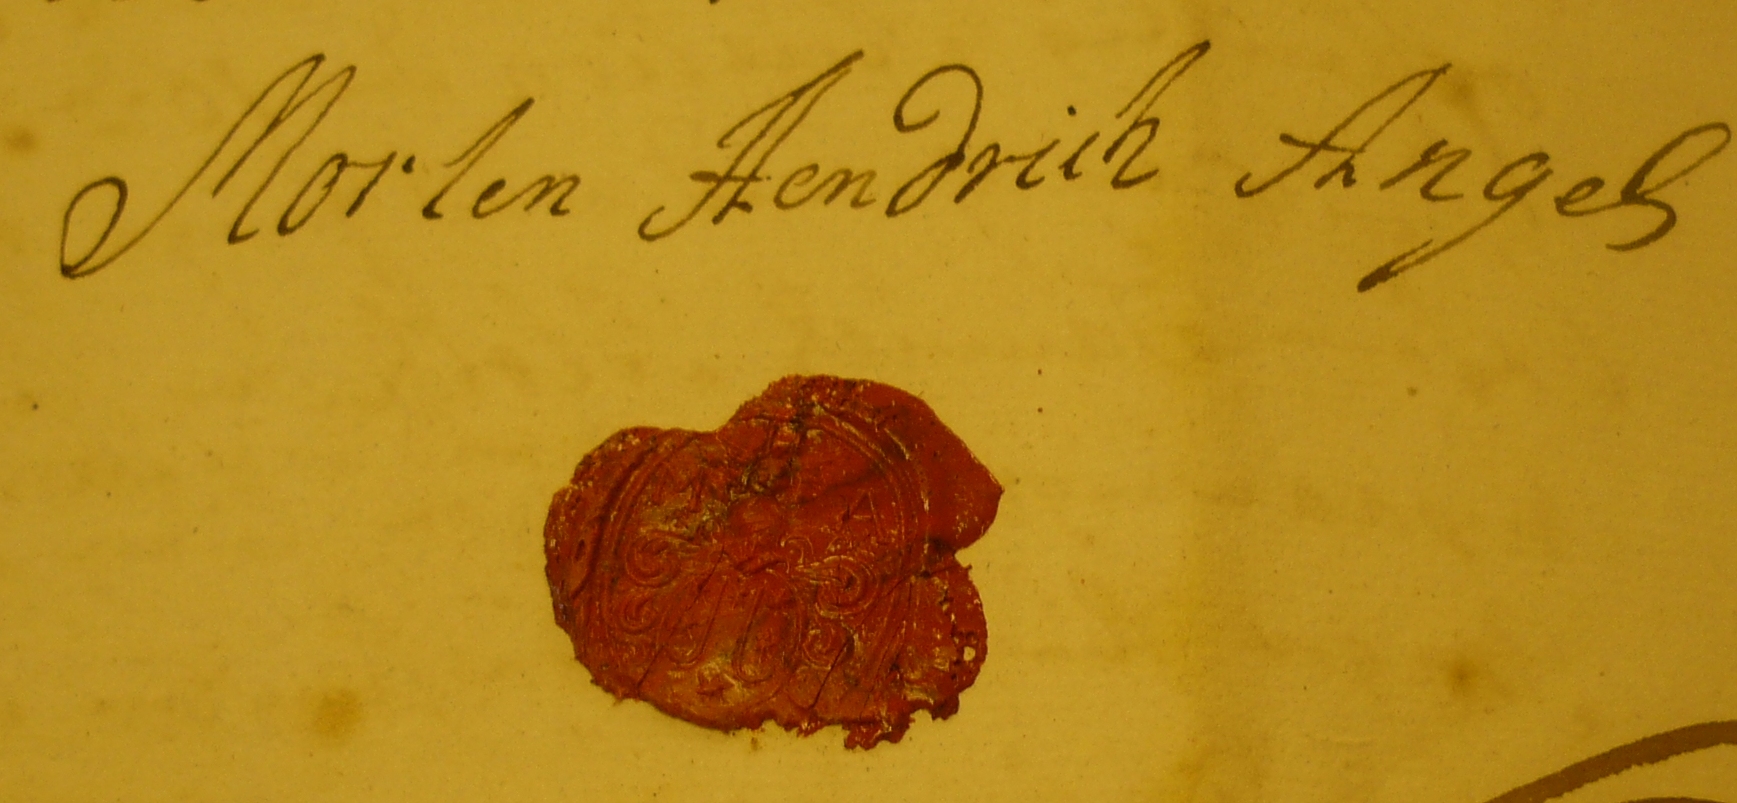 Morten Hendrich Angel